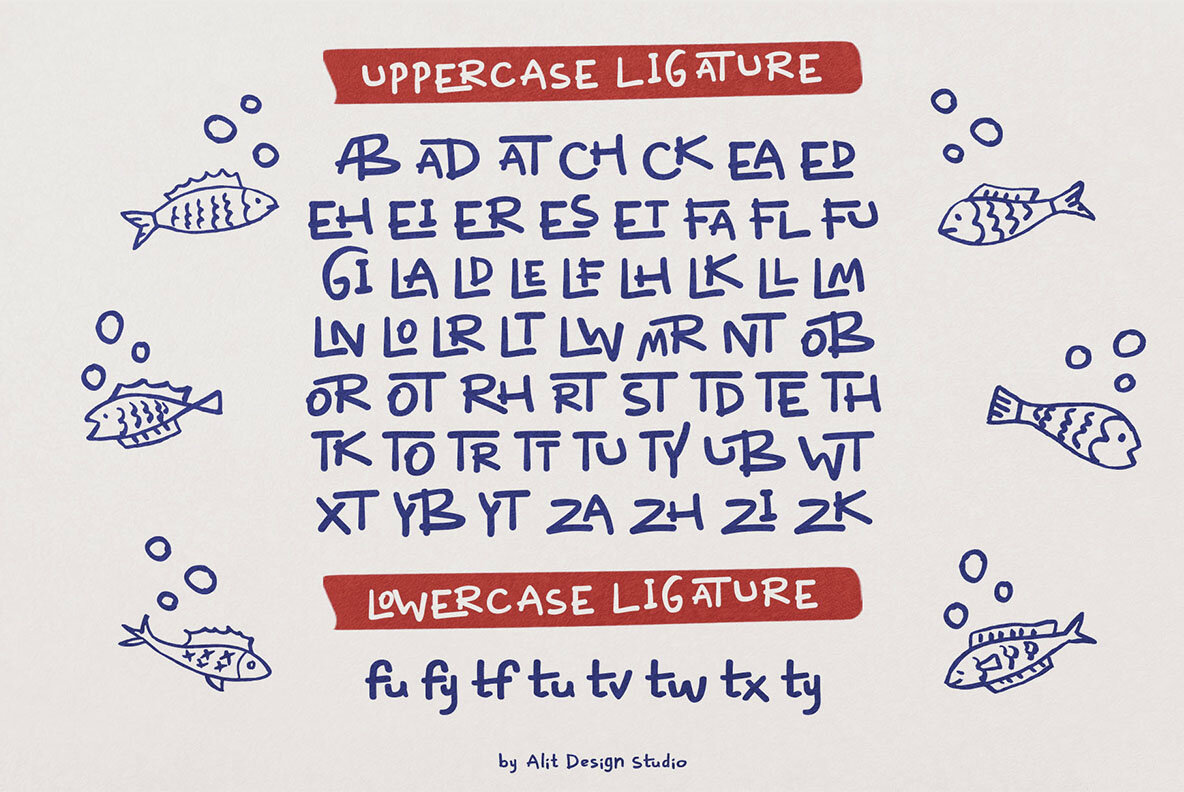 UPPERCASE LIGATURE
AB AD AT CH CK EA ED
EH EI ER ES ET FA FL FU
GI LA LD LE LF LH LK LL LM
LN LO LR LT LW MR NT OB
OR OT RH RT ST TD TE TH
TK TO TR TT TU TY UB WT
XT YB YT ZA ZH ZI ZK
LOWERCASE LIGATURE
fu fy tf tu tv tw tx ty
by Alit Design Studio